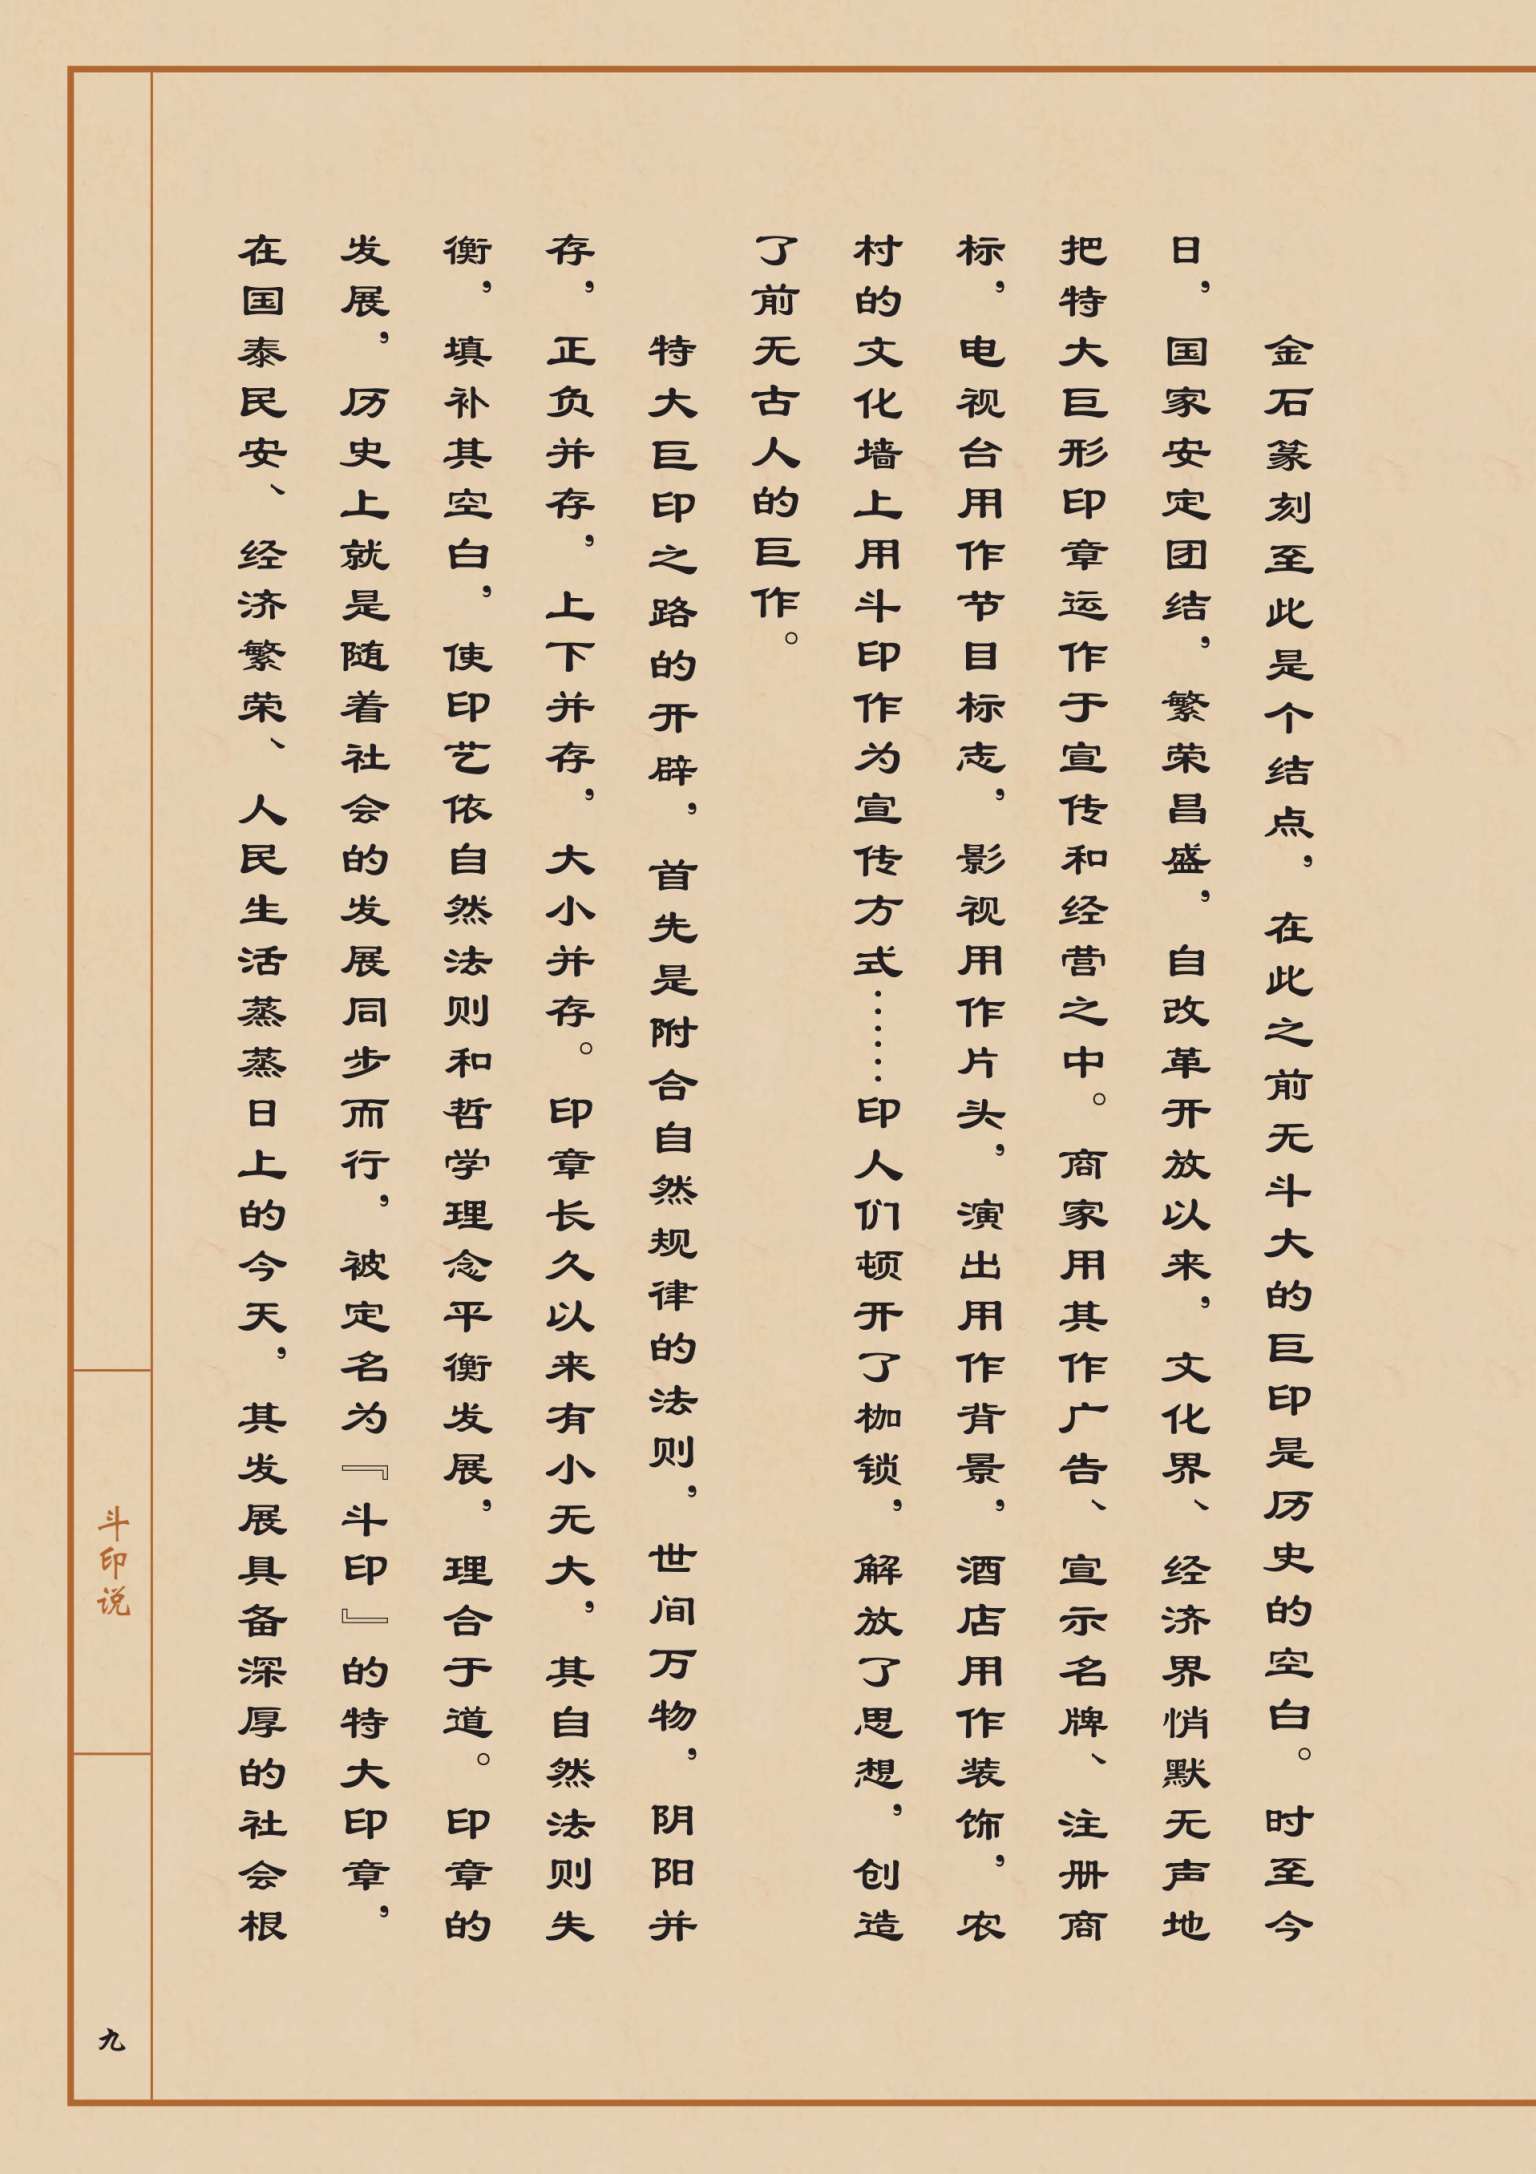 金石篆刻至此是个结点，在此之前无斗大的巨印是历史的空白。时至今
日，国家安定团结，繁荣昌盛，自改革开放以来，文化界、经济界悄默无声地
把特大巨形印章运作于宣传和经营之中。商家用其作广告、宣示名牌、注册商
标，电视台用作节目标志，影视用作片头，演出用作背景，酒店用作装饰，农
村的文化墙上用斗印作为宣传方式……印人们顿开了枷锁，解放了思想，创造
了前无古人的巨作。
特大巨印之路的开辟，首先是附合自然规律的法则，世间万物，阴阳并
存，正负并存，上下并存，大小并存。印章长久以来有小无大，其自然法则失
衡，填补其空白，使印艺依自然法则和哲学理念平衡发展，理合于道。印章的
发展，历史上就是随着社会的发展同步而行，被定名为『斗印』的特大印章，
在国泰民安、经济繁荣、人民生活蒸蒸日上的今天，其发展具备深厚的社会根
斗印说
九